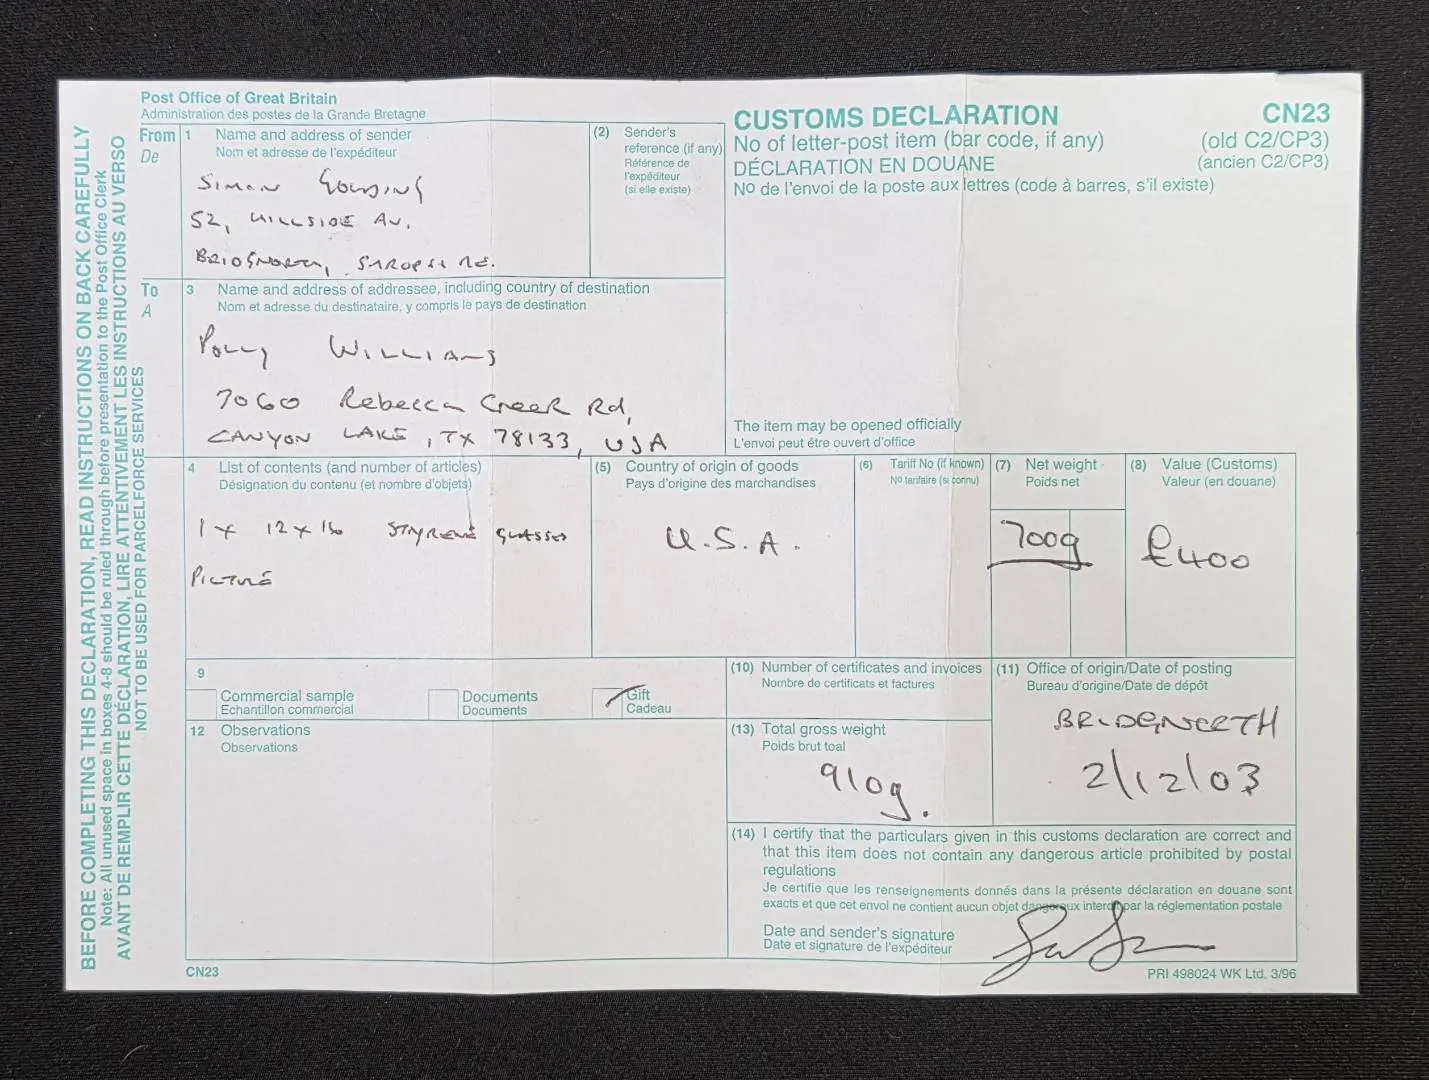 BEFORE COMPLETING THIS DECLARATION, READ INSTRUCTIONS ON BACK CAREFULLY
Note: All unused space in boxes 4-8 should be ruled through before presentation to the Post Office Clerk
AVANT DE REMPLIR CETTE DÉCLARATION, LIRE ATTENTIVEMENT LES INSTRUCTIONS AU VERSO
NOT TO BE USED FOR PARCELFORCE SERVICES
Post Office of Great Britain
Administration des postes de la Grande Bretagne
From
De
1 Name and address of sender
Nom et adresse de l'expéditeur
SIMON
52, HILLSIDE AV.
BRIDGNORTH,
(2) Sender's
reference (if any)
Référence de
l'expéditeur
(si elle existe)
CUSTOMS DECLARATION
No of letter-post item (bar code, if any)
DÉCLARATION EN DOUANE
Nº de l'envoi de la poste aux lettres (code à barres, s'il existe)
CN23
(old C2/CP3)
(ancien C2/CP3)
To
A
3 Name and address of addressee, including country of destination
Nom et adresse du destinataire, y compris le pays de destination
POLLY WILLIAMS
7060 Rebecca Creek Rd,
CANYON LAKE, TX 78133, USA
The item may be opened officially
L'envoi peut être ouvert d'office
4 List of contents (and number of articles)
Désignation du contenu (et nombre d'objets)
1 x 12 x 16 STYRENE
PICTURE
(5) Country of origin of goods
Pays d'origine des marchandises
U.S.A.
(6) Tariff No (if known)
Nº tarifaire (si connu)
(7) Net weight
Poids net
700g
(8) Value (Customs)
Valeur (en douane)
£400
9
Commercial sample
Echantillon commercial
Documents
Documents
Gift
Cadeau
(10) Number of certificates and invoices
Nombre de certificats et factures
(11) Office of origin/Date of posting
Bureau d'origine/Date de dépôt
BRIDGNORTH
2/12/03
12 Observations
Observations
(13) Total gross weight
Poids brut toal
910g.
(14) I certify that the particulars given in this customs declaration are correct and
that this item does not contain any dangerous article prohibited by postal
regulations
Je certifie que les renseignements donnés dans la présente déclaration en douane sont
exacts et que cet envoi ne contient aucun objet dangereux interdit par la réglementation postale
Date and sender's signature
Date et signature de l'expéditeur
CN23
PRI 498024 WK Ltd. 3/96